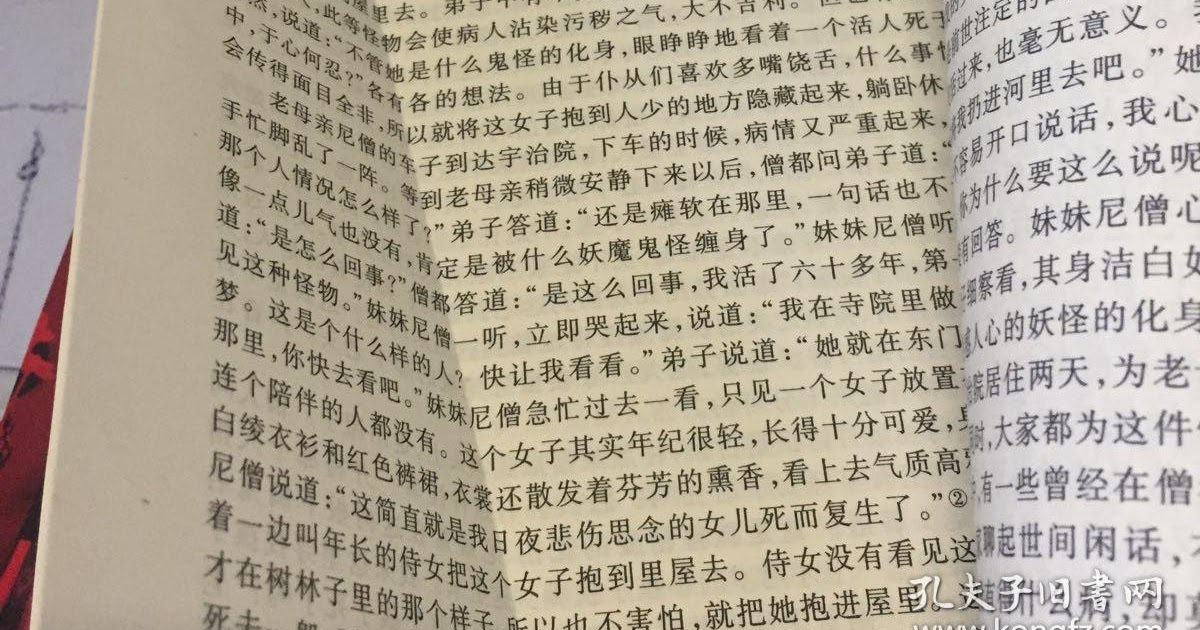 屋里去。弟子中有
人，此等怪物会使病人沾染污秽之气，大不吉利。但也
然，说道：“不管她是什么鬼怪的化身，眼睁睁地看着一个活人死于
中，于心何忍？”各有各的想法。由于仆从们喜欢多嘴饶舌，什么事情
会传得面目全非，所以就将这女子抱到人少的地方隐藏起来，躺卧休
老母亲尼僧的车子到达宇治院，下车的时候，病情又严重起来，
手忙脚乱了一阵。等到老母亲稍微安静下来以后，僧都问弟子道：“
那个人情况怎么样了？”弟子答道：“还是瘫软在那里，一句话也不
像一点儿气也没有，肯定是被什么妖魔鬼怪缠身了。”妹妹尼僧听
道：“是怎么回事？”僧都答道：“是这么回事，我活了六十多年，第一
见这种怪物。”妹妹尼僧一听，立即哭起来，说道：“我在寺院里做
梦。这是个什么样的人？快让我看看。”弟子说道：“她就在东门
那里，你快去看吧。”妹妹尼僧急忙过去一看，只见一个女子放置
连个陪伴的人都没有。这个女子其实年纪很轻，长得十分可爱，身
白绫衣衫和红色裤裙，衣裳还散发着芬芳的熏香，看上去气质高
尼僧说道：“这简直就是我日夜悲伤思念的女儿死而复生了。”②
着一边叫年长的侍女把这个女子抱到里屋去。侍女没有看见这
才在树林子里的那个样子，所以也不害怕，就把她抱进屋里。这
死去一般
世注定的
过来，也毫无意义。
我扔进河里去吧。”她
容易开口说话，我心
你为什么要这么说呢
有回答。妹妹尼僧心
细察看，其身洁白如
人心的妖怪的化身
院居住两天，为老
时，大家都为这件
有一些曾经在僧
聊起世间闲话，
有什么
孔夫子旧书网
www.kongfz.com